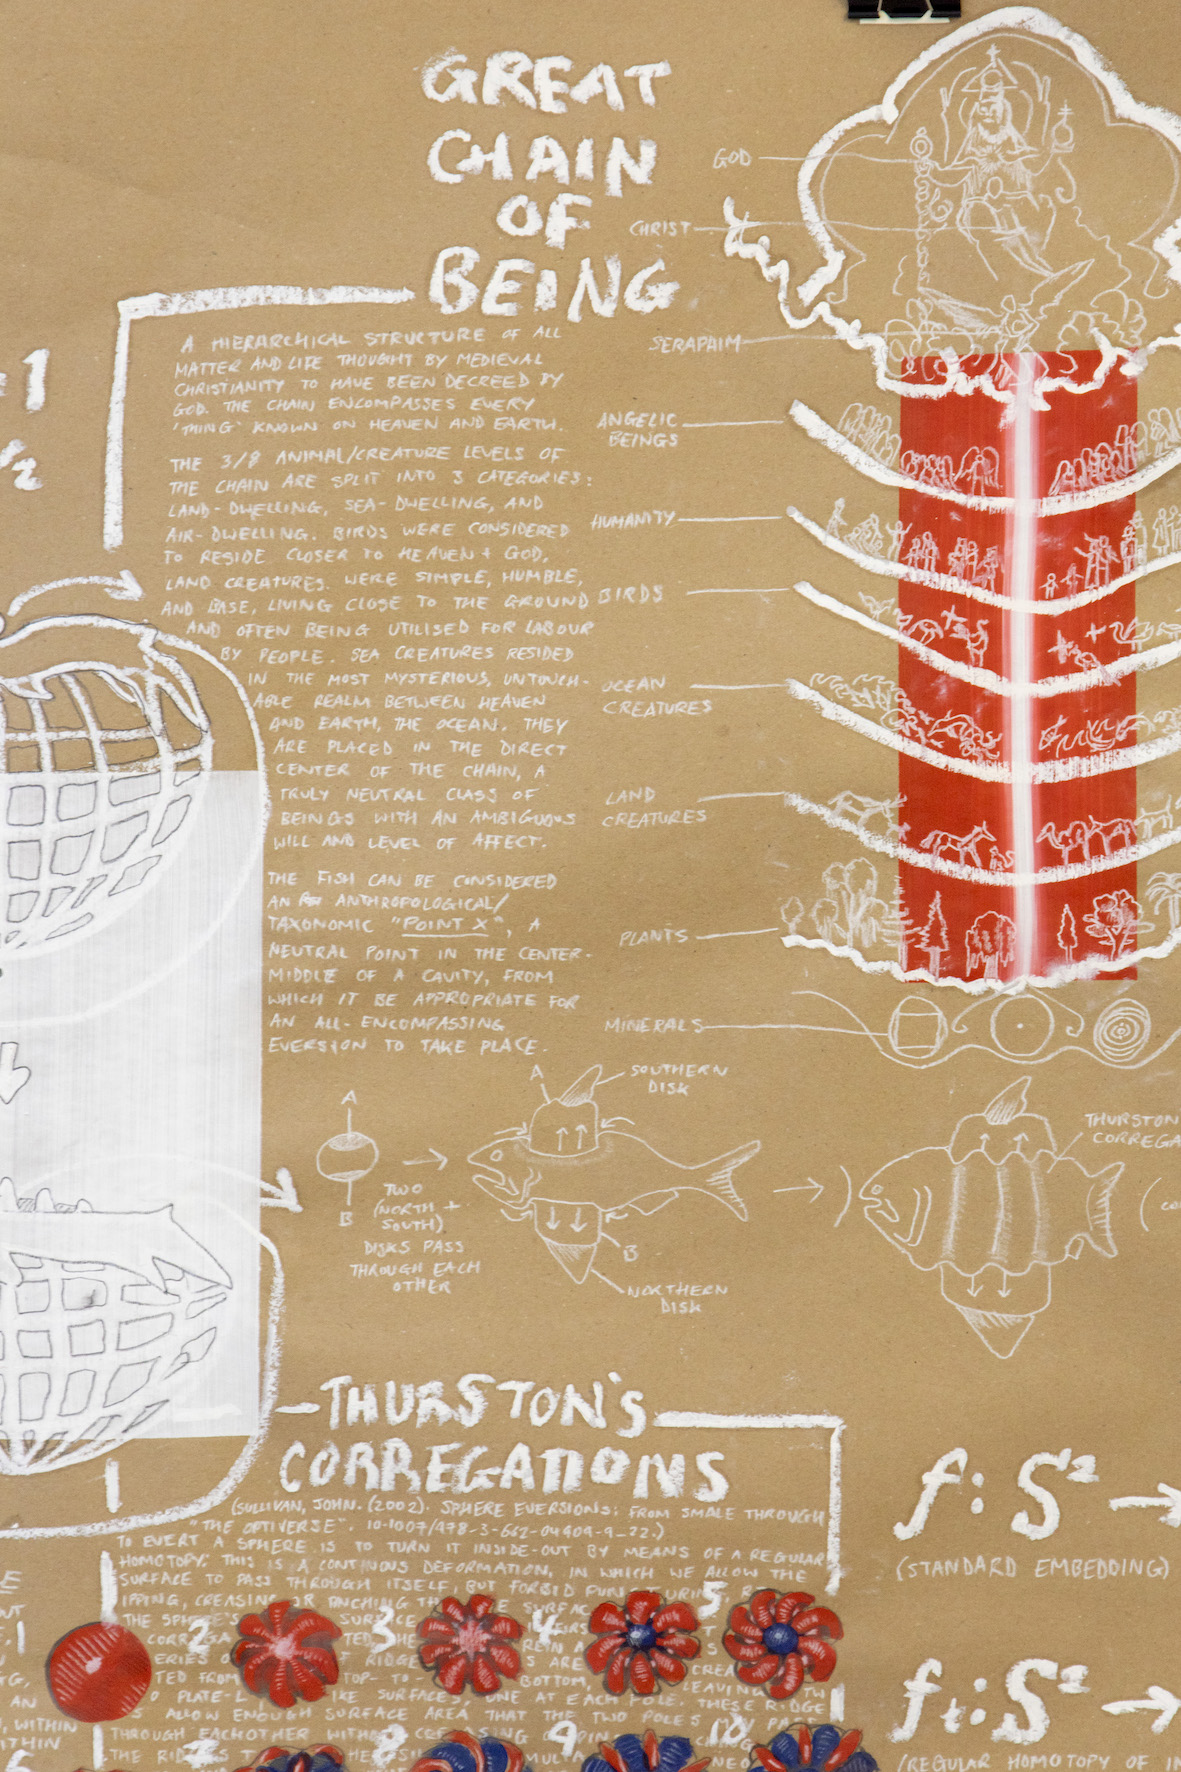 GREAT
CHAIN
OF
BEING
A HIERARCHICAL STRUCTURE OF ALL
MATTER AND LIFE THOUGHT BY MEDIEVAL
CHRISTIANITY TO HAVE BEEN DECREED BY
GOD. THE CHAIN ENCOMPASSES EVERY
'THING' KNOWN ON HEAVEN AND EARTH.
THE 3/8 ANIMAL/CREATURE LEVELS OF
THE CHAIN ARE SPLIT INTO 3 CATEGORIES:
LAND-DWELLING, SEA-DWELLING, AND
AIR-DWELLING. BIRDS WERE CONSIDERED
TO RESIDE CLOSER TO HEAVEN + GOD,
LAND CREATURES. WERE SIMPLE, HUMBLE,
AND BASE, LIVING CLOSE TO THE GROUND
AND OFTEN BEING UTILISED FOR LABOUR
BY PEOPLE. SEA CREATURES RESIDED
IN THE MOST MYSTERIOUS, UNTOUCH-
ABLE REALM BETWEEN HEAVEN
AND EARTH, THE OCEAN. THEY
ARE PLACED IN THE DIRECT
CENTER OF THE CHAIN, A
TRULY NEUTRAL CLASS OF
BEINGS WITH AN AMBIGUOUS
WILL AND LEVEL OF AFFECT.
THE FISH CAN BE CONSIDERED
AN ANTHROPOLOGICAL/
TAXONOMIC "POINT X", A
NEUTRAL POINT IN THE CENTER-
MIDDLE OF A CAVITY, FROM
WHICH IT BE APPROPRIATE FOR
AN ALL-ENCOMPASSING
EVERSION TO TAKE PLACE.
GOD
CHRIST
SERAPHIM
ANGELIC
BEINGS
HUMANITY
BIRDS
OCEAN
CREATURES
LAND
CREATURES
PLANTS
MINERALS
1
1/2
A
B
TWO
(NORTH +
SOUTH)
DISKS PASS
THROUGH EACH
OTHER
A
SOUTHERN
DISK
B
NORTHERN
DISK
THURSTON
CORREGA
THURSTON'S
CORREGATIONS
(SULLIVAN, JOHN. (2002). SPHERE EVERSIONS: FROM SMALE THROUGH
"THE OPTIVERSE". 10.1007/978-3-662-04909-9_22.)
TO EVERT A SPHERE IS TO TURN IT INSIDE-OUT BY MEANS OF A REGULAR
HOMOTOPY; THIS IS A CONTINOUS DEFORMATION, IN WHICH WE ALLOW THE
SURFACE TO PASS THROUGH ITSELF, BUT FORBID PUNCTURING, R
IPPING, CREASING OR PINCHING THE SURFAC
THE SPHERE'S SURFACE
1 2 3 4 5
RIDGE
TOP-TO-
BOTTOM, LEAVING TW
SURFACES, ONE AT EACH POLE. THESE RIDGE
S ALLOW ENOUGH SURFACE AREA THAT THE TWO POLES MAY PASS
THROUGH EACHOTHER WITHO
THE RID
9 10
WITHIN
f: S²
(STANDARD EMBEDDING)
ft: S²
(REGULAR HOMOTOPY OF